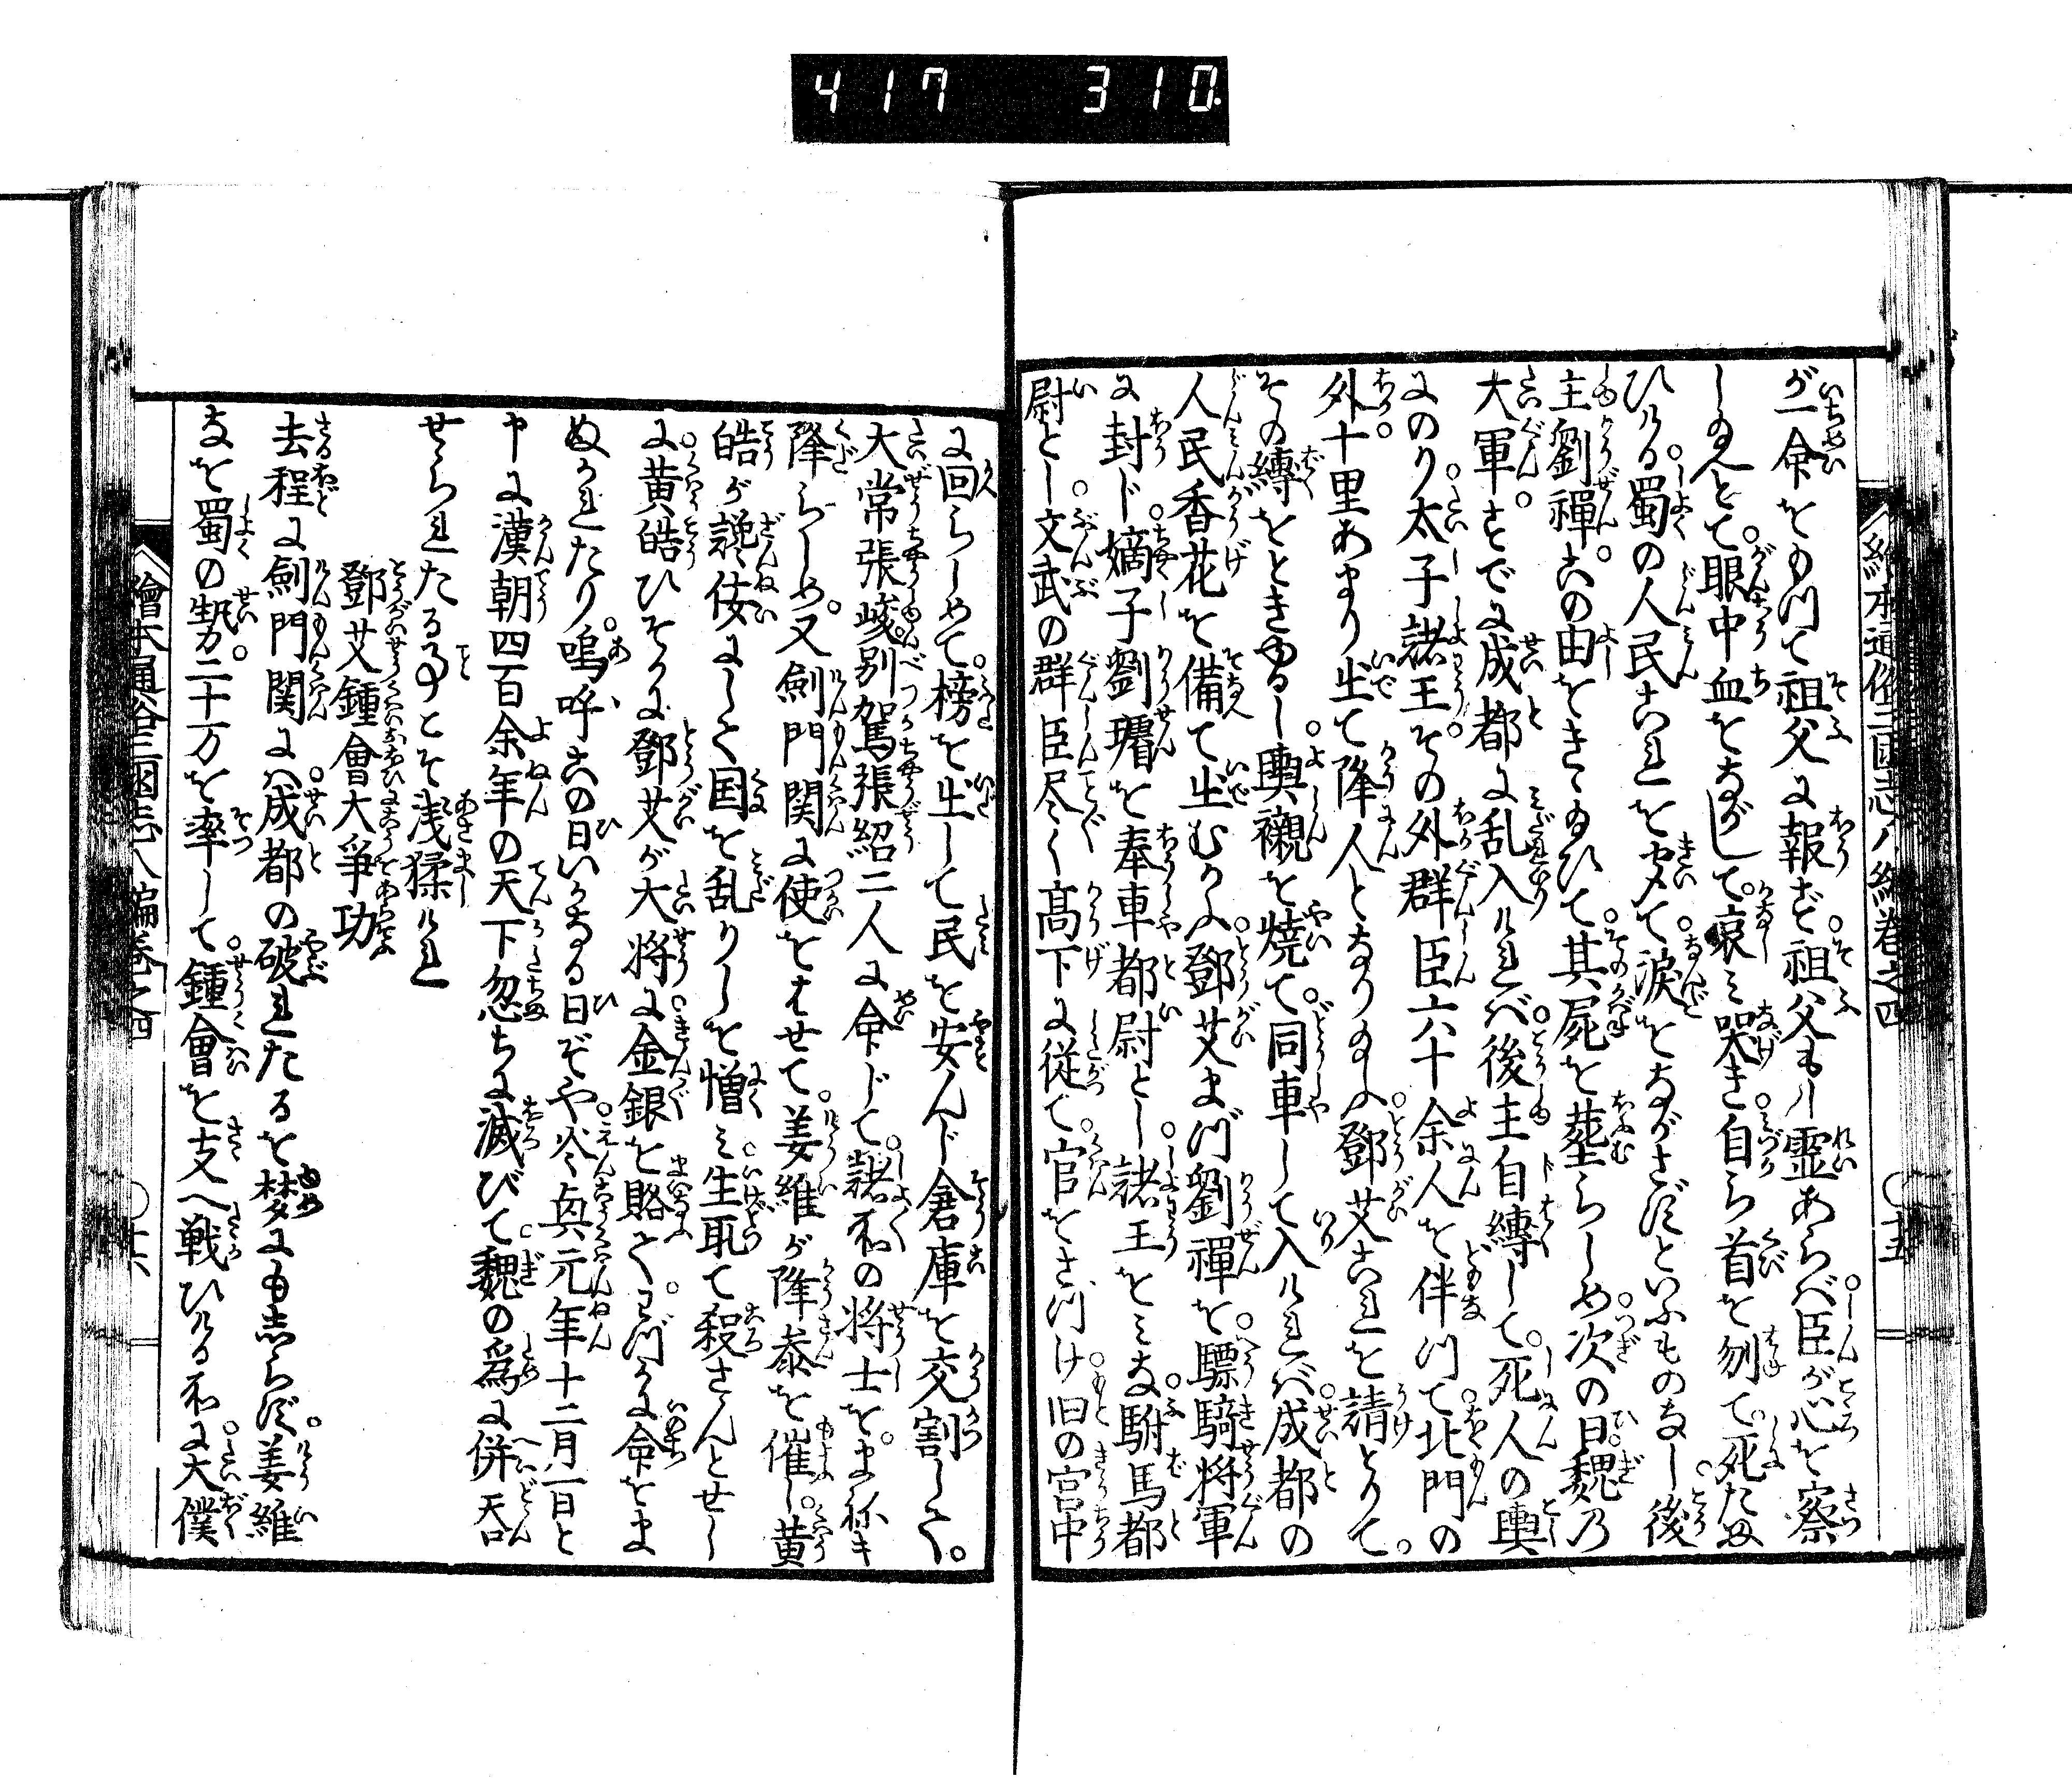 417 310
繪本通俗三國志八編卷之四 〇十五
が一命をもつて祖父に報ず祖父もし霊あらバ臣が心を察
し給へとて眼中血をながして哀ミ哭き自ら首を刎て死たま
ひける蜀の人民これを聞て涙をながさずといふものなし後
主劉禪この由をきゝ給ひて其屍を葬らしめ次の日魏乃
大軍すでに成都に乱入ければ後主自縛して死人の輿
にのり太子諸王その外群臣六十余人を伴つて北門の
外十里あまり出て降人となり給ふ鄧艾これを請とりて
その縛をときゆるし輿櫬を焼て同車して入ければ成都の
人民香花を備て出むかふ鄧艾まづ劉禪を驃騎将軍
に封じ嫡子劉璿を奉車都尉とし諸王をミな駙馬都
尉とし文武の群臣尽く高下に従て官をさづけ旧の宮中
に回らしめて榜を出して民を安んじ倉庫を交割して
大常張峻別駕張紹二人に命じて諸郡の将士をまねき
降らしめ又劍門関に使をはせて姜維が降参を催し黄
皓が讒佞にして国を乱りしを憎ミ生取て殺さんとせし
に黄皓ひそかに鄧艾が大将に金銀を賂てわづかに命をま
ぬかれたり嗚呼この日いかなる日ぞや炎興元年十二月一日と
申に漢朝四百余年の天下忽ちに滅びて魏の為に併呑
せられたる事こそ浅猿けれ
鄧艾鍾會大爭功
去程に劍門関にハ成都の破れたるを梦にも志らず姜維
なを蜀の勢二十万を率して鍾會を支へ戦ひける所に大僕
繪本通俗三國志八編卷之四 〇十六